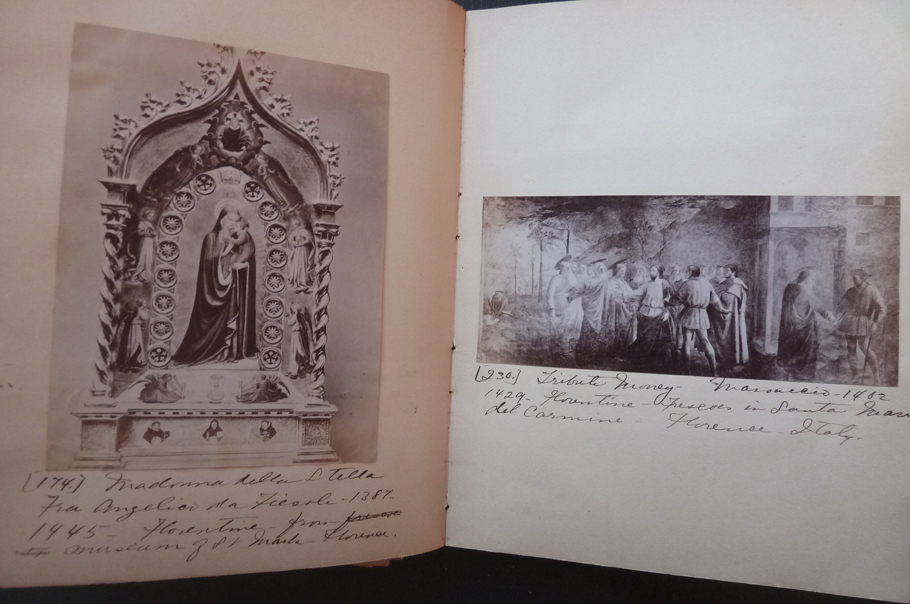 [174.] Madonna della Stella
Fra Angelico da Fiesole - 1387-
1445 - Florentine - from fresco
museum of St Mark - Florence.
[230.] Tribute Money - Masaccio - 1402
1429 - Florentine - Frescoes in Santa Maria
del Carmine - Florence - Italy.